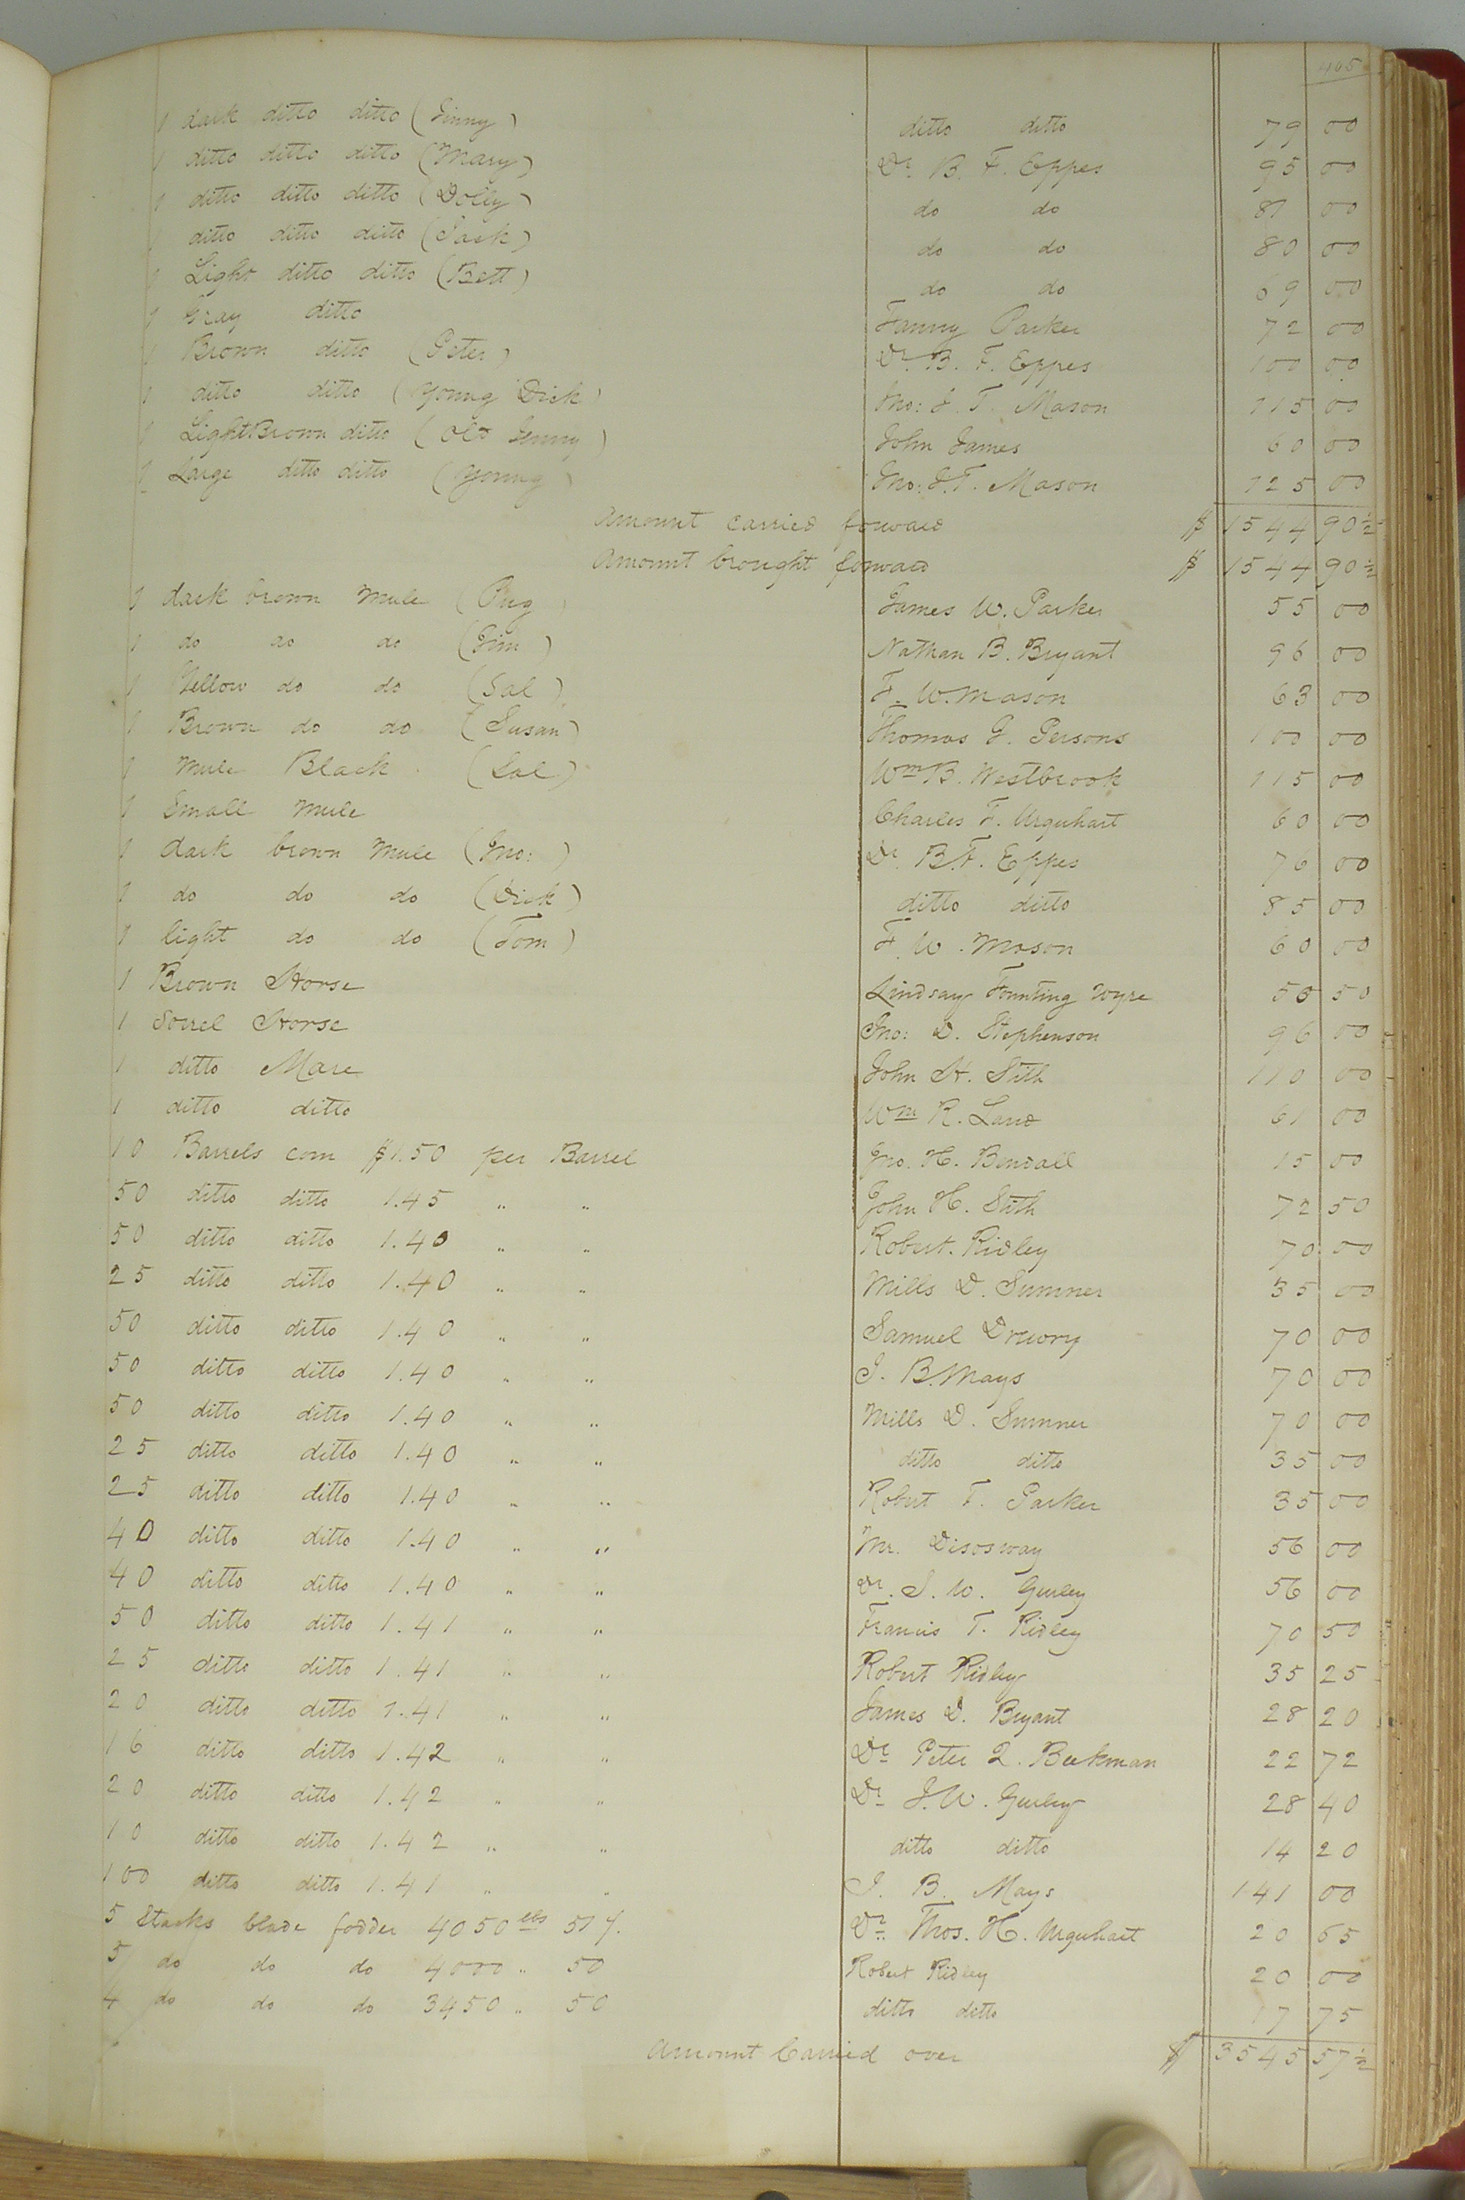 465
1 dark ditto ditto (Jinny) ditto ditto 79 00
1 ditto ditto ditto (Mary) Dr. B. F. Eppes 95 00
1 ditto ditto ditto (Dolly) do do 81 00
1 ditto ditto ditto (Jack) do do 80 00
1 Light ditto ditto (Bett) do do 69 00
1 Gray ditto Fanny Parker 72 00
1 Brown ditto (Peter) Dr. B. F. Eppes 100 00
1 ditto ditto (Young Dick) Jno: J. T. Mason 115 00
1 Light Brown ditto (Old Jenny) John James 60 00
1 Large ditto ditto (Young) Jno: J. T. Mason 125 00
Amount carried forward $ 1544 90½
Amount brought forward $ 1544 90½
1 dark brown Mule (Pug) James W. Parker 55 00
1 do do do (Jim) Nathan B. Bryant 96 00
1 Yellow do do (Sal) F. W. Mason 63 00
1 Brown do do (Susan) Thomas J. Persons 100 00
1 Mule Black (Sal) Wm B. Westbrook 115 00
1 Small Mule Charles F. Urquhart 60 00
1 dark brown Mule (Jno:) Dr. B. F. Eppes 76 00
1 do do do (Dick) ditto ditto 85 00
1 light do do (Tom) F. W. Mason 60 00
1 Brown Horse Lindsay 50
1 Sorrel Horse Jno: D. Stephenson 96 00
1 ditto Mare John H. Stith 110 00
1 ditto ditto Wm R. Land 61 00
10 Barrels corn $1.50 per Barrel Jno. H. Bendall 15 00
50 ditto ditto 1.45 " " John H. Stith 72 50
50 ditto ditto 1.40 " " Robert Ridley 70 00
25 ditto ditto 1.40 " " Mills D. Sumner 35 00
50 ditto ditto 1.40 " " Samuel Drewry 70 00
50 ditto ditto 1.40 " " J. B. Mays 70 00
50 ditto ditto 1.40 " " Mills D. Sumner 70 00
25 ditto ditto 1.40 " " ditto ditto 35 00
25 ditto ditto 1.40 " " Robert T. Parker 35 00
40 ditto ditto 1.40 " " Mr. Disosway 56 00
40 ditto ditto 1.40 " " Dr. J. W. Gurley 56 00
50 ditto ditto 1.41 " " Francis T. Ridley 70 50
25 ditto ditto 1.41 " " Robert Ridley 35 25
20 ditto ditto 1.41 " " James D. Bryant 28 20
16 ditto ditto 1.42 " " Dr Peter Q. Beekman 22 72
20 ditto ditto 1.42 " " Dr J. W. Gurley 28 40
10 ditto ditto 1.42 " " ditto ditto 14 20
100 ditto ditto 1.41 " " J. B. Mays 141 00
5 Stacks blade fodder 4050 lbs 51 ¢. Dr. Thos. H. Urquhart 20 65
5 do do do 4000 " 50 Robert Ridley 20 00
4 do do do 3450 " 50 ditto ditto 17 75
Amount Carried over $ 3545 57½